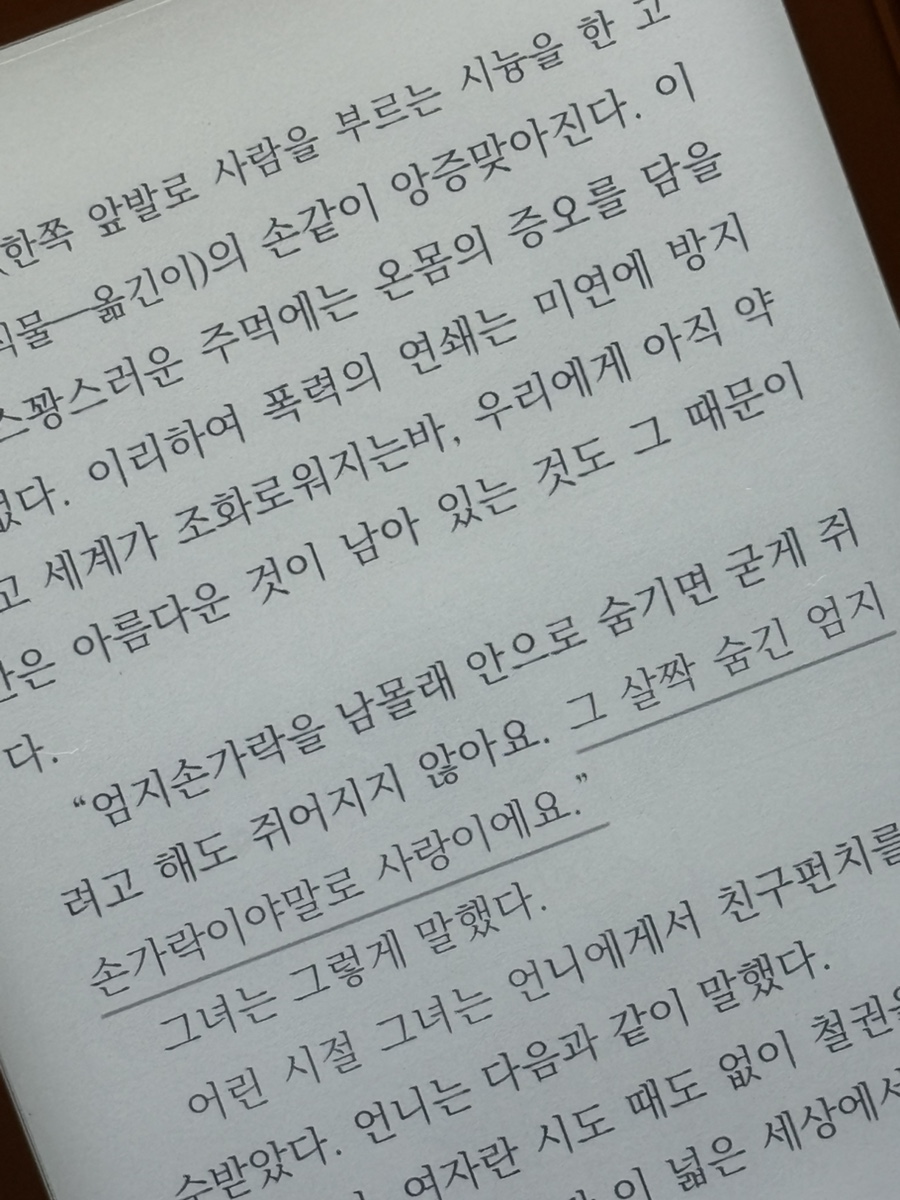 (한쪽 앞발로 사람을 부르는 시늉을 한 고
식물—옮긴이)의 손같이 앙증맞아진다. 이
스꽝스러운 주먹에는 온몸의 증오를 담을
없다. 이리하여 폭력의 연쇄는 미연에 방지
고 세계가 조화로워지는바, 우리에게 아직 약
간은 아름다운 것이 남아 있는 것도 그 때문이
다.
“엄지손가락을 남몰래 안으로 숨기면 굳게 쥐
려고 해도 쥐어지지 않아요. 그 살짝 숨긴 엄지
손가락이야말로 사랑이에요.”
그녀는 그렇게 말했다.
어린 시절 그녀는 언니에게서 친구펀치를
수받았다. 언니는 다음과 같이 말했다.
여자란 시도 때도 없이 철권을
이 넓은 세상에서